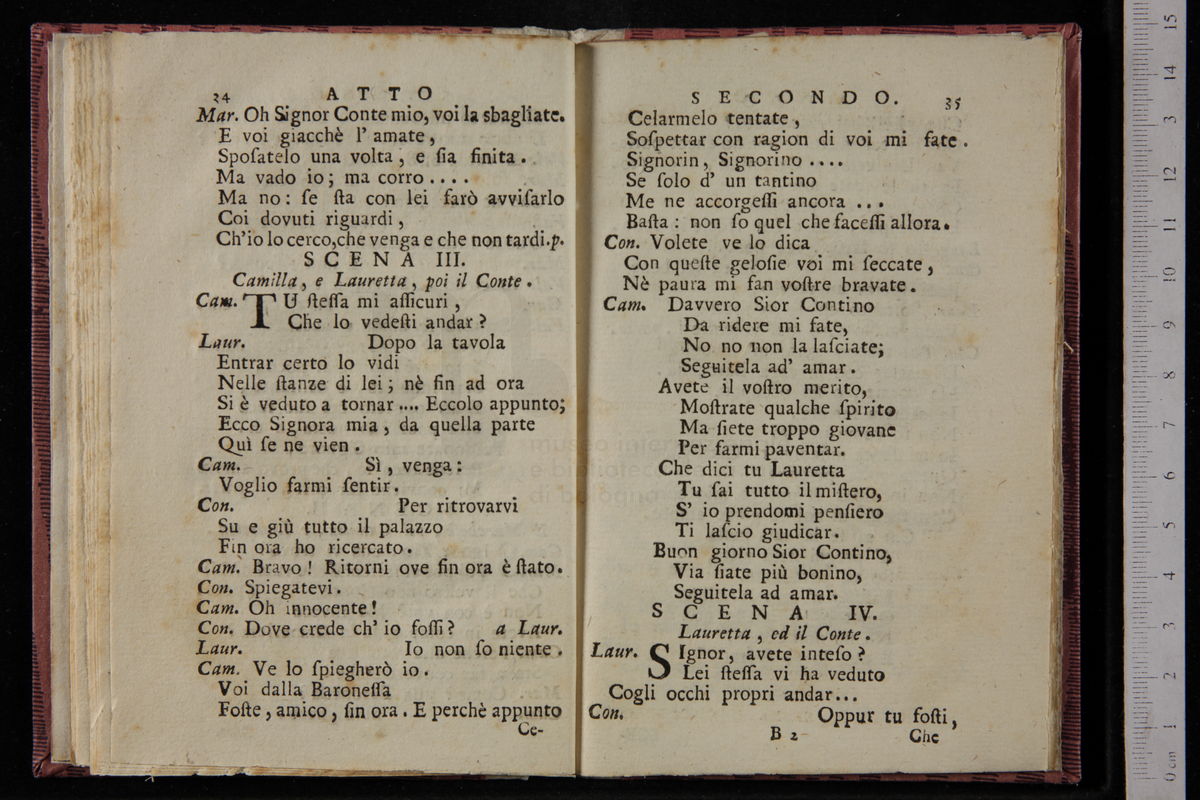 34 ATTO
Mar. Oh Signor Conte mio, voi la sbagliate.
E voi giacchè l' amate,
Spoſatelo una volta, e ſia finita.
Ma vado io; ma corro ....
Ma no: ſe ſta con lei farò avviſarlo
Coi dovuti riguardi,
Ch'io lo cerco,che venga e che non tardi.p.
SCENA III.
Camilla, e Lauretta, poi il Conte.
Cam. TU ſteſſa mi aſſicuri,
Che lo vedeſti andar?
Laur. Dopo la tavola
Entrar certo lo vidi
Nelle ſtanze di lei; nè fin ad ora
Si è veduto a tornar .... Eccolo appunto;
Ecco Signora mia, da quella parte
Quì ſe ne vien.
Cam. Sì, venga:
Voglio farmi ſentir.
Con. Per ritrovarvi
Su e giù tutto il palazzo
Fin ora ho ricercato.
Cam. Bravo! Ritorni ove fin ora è ſtato.
Con. Spiegatevi.
Cam. Oh innocente!
Con. Dove crede ch' io foſſi? a Laur.
Laur. Io non ſo niente.
Cam. Ve lo ſpiegherò io.
Voi dalla Baroneſſa
Foſte, amico, fin ora. E perchè appunto
Ce-
SECONDO. 35
Celarmelo tentate,
Soſpettar con ragion di voi mi fate.
Signorin, Signorino ....
Se ſolo d' un tantino
Me ne accorgeſſi ancora ...
Baſta: non ſo quel che faceſſi allora.
Con. Volete ve lo dica
Con queſte geloſie voi mi ſeccate,
Nè paura mi fan voſtre bravate.
Cam. Davvero Sior Contino
Da ridere mi fate,
No no non la laſciate;
Seguitela ad' amar.
Avete il voſtro merito,
Moſtrate qualche ſpirito
Ma ſiete troppo giovane
Per farmi paventar.
Che dici tu Lauretta
Tu ſai tutto il miſtero,
S' io prendomi penſiero
Ti laſcio giudicar.
Buon giorno Sior Contino,
Via ſiate più bonino,
Seguitela ad amar.
SCENA IV.
Lauretta, ed il Conte.
Laur. SIgnor, avete inteſo?
Lei ſteſſa vi ha veduto
Cogli occhi propri andar...
Con. Oppur tu foſti,
B 2 Che
15
14
13
12
11
10
9
8
7
6
5
4
3
2
1
0 cm